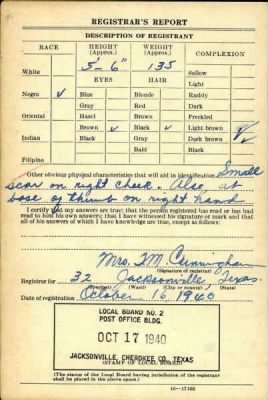 REGISTRAR'S REPORT
DESCRIPTION OF REGISTRANT
RACE HEIGHT (Approx.) WEIGHT (Approx.) COMPLEXION
5' 6" 135
White Sallow
EYES HAIR Light
Negro ✓ Blue Blonde Ruddy
Gray Red Dark
Oriental Hazel Brown Freckled
Brown ✓ Black ✓ Light brown ✓
Indian Black Gray Dark brown
Bald Black
Filipino
Other obvious physical characteristics that will aid in identification Small
scar on right cheek. Also, at
base of thumb on right hand
I certify that my answers are true; that the person registered has read or has had
read to him his own answers; that I have witnessed his signature or mark and that
all of his answers of which I have knowledge are true, except as follows:
Mrs. I. M. Cunningham
(Signature of registrar)
Registrar for 32 Jacksonville, Texas.
(Precinct) (Ward) (City or county) (State)
Date of registration October 16, 1940
LOCAL BOARD NO. 2
POST OFFICE BLDG.
OCT 17 1940
JACKSONVILLE, CHEROKEE CO. TEXAS
(STAMP OF LOCAL BOARD)
(The stamp of the Local Board having jurisdiction of the registrant
shall be placed in the above space.)